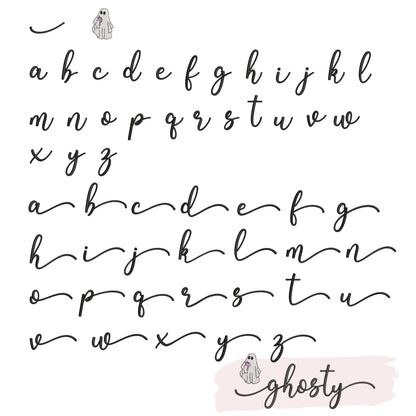 a b c d e f g h i j k l
m n o p q r s t u v w
x y z
a b c d e f g
h i j k l m n
o p q r s t u
v w x y z
ghosty